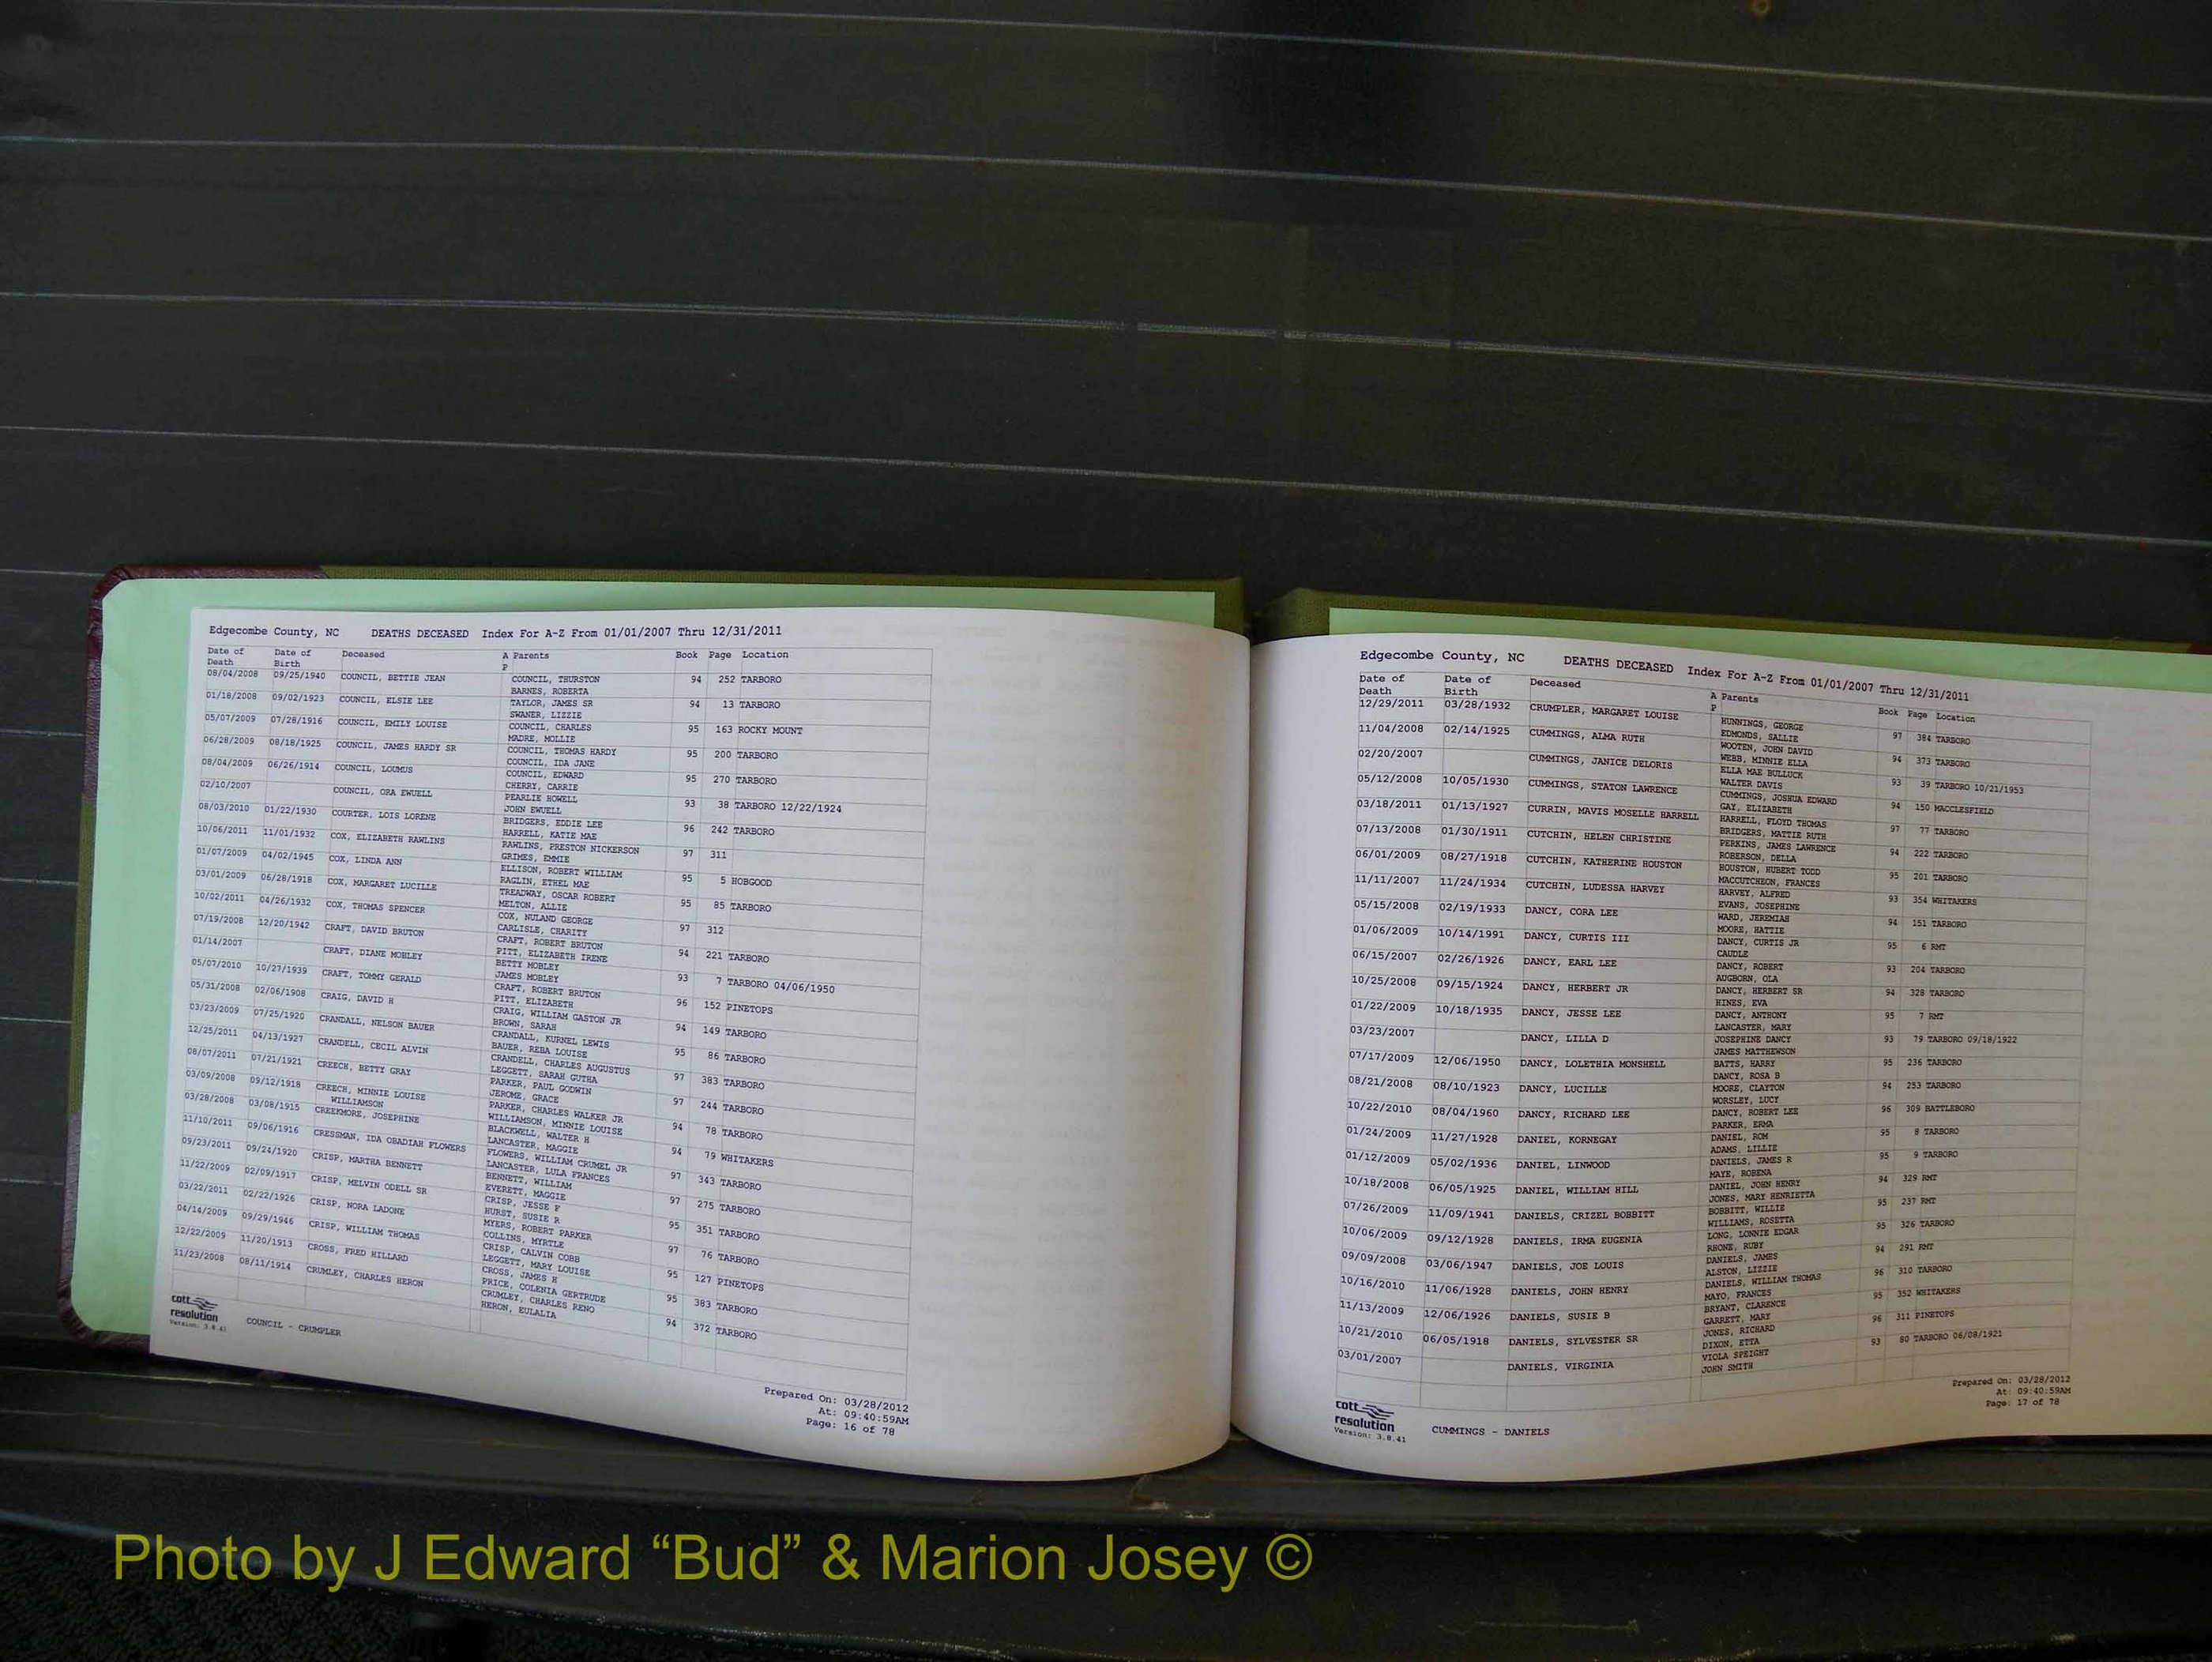 Edgecombe County, NC DEATHS DECEASED Index For A-Z From 01/01/2007 Thru 12/31/2011
Date of Death Date of Birth Deceased A P Parents Book Page Location
08/04/2008 09/25/1940 COUNCIL, BETTIE JEAN COUNCIL, THURSTON 94 252 TARBORO
BARNES, ROBERTA
01/18/2008 09/02/1923 COUNCIL, ELSIE LEE TAYLOR, JAMES SR 94 13 TARBORO
SWANER, LIZZIE
05/07/2009 07/28/1916 COUNCIL, EMILY LOUISE COUNCIL, CHARLES 95 163 ROCKY MOUNT
MADRE, MOLLIE
06/28/2009 08/18/1925 COUNCIL, JAMES HARDY SR COUNCIL, THOMAS HARDY 95 200 TARBORO
COUNCIL, IDA JANE
08/04/2009 06/26/1914 COUNCIL, LOUMUS COUNCIL, EDWARD 95 270 TARBORO
CHERRY, CARRIE
02/10/2007 COUNCIL, ORA EWUELL PEARLIE HOWELL 93 38 TARBORO 12/22/1924
JOHN EWUELL
08/03/2010 01/22/1930 COURTER, LOIS LORENE BRIDGERS, EDDIE LEE 96 242 TARBORO
HARRELL, KATIE MAE
10/06/2011 11/01/1932 COX, ELIZABETH RAWLINS RAWLINS, PRESTON NICKERSON 97 311
GRIMES, EMMIE
01/07/2009 04/02/1945 COX, LINDA ANN ELLISON, ROBERT WILLIAM 95 5 HOBGOOD
RAGLIN, ETHEL MAE
03/01/2009 06/28/1918 COX, MARGARET LUCILLE TREADWAY, OSCAR ROBERT 95 85 TARBORO
MELTON, ALLIE
10/02/2011 04/26/1932 COX, THOMAS SPENCER COX, NULAND GEORGE 97 312
CARLISLE, CHARITY
07/19/2008 12/20/1942 CRAFT, DAVID BRUTON CRAFT, ROBERT BRUTON 94 221 TARBORO
PITT, ELIZABETH IRENE
01/14/2007 CRAFT, DIANE MOBLEY BETTY MOBLEY 93 7 TARBORO 04/06/1950
JAMES MOBLEY
05/07/2010 10/27/1939 CRAFT, TOMMY GERALD CRAFT, ROBERT BRUTON 96 152 PINETOPS
PITT, ELIZABETH
05/31/2008 02/06/1908 CRAIG, DAVID H CRAIG, WILLIAM GASTON JR 94 149 TARBORO
BROWN, SARAH
03/23/2009 07/25/1920 CRANDALL, NELSON BAUER CRANDALL, KURNEL LEWIS 95 86 TARBORO
BAUER, REBA LOUISE
12/25/2011 04/13/1927 CRANDELL, CECIL ALVIN CRANDELL, CHARLES AUGUSTUS 97 383 TARBORO
LEGGETT, SARAH GUTHA
08/07/2011 07/21/1921 CREECH, BETTY GRAY PARKER, PAUL GODWIN 97 244 TARBORO
JEROME, GRACE
03/09/2008 09/12/1918 CREECH, MINNIE LOUISE PARKER, CHARLES WALKER JR 94 78 TARBORO
WILLIAMSON WILLIAMSON, MINNIE LOUISE
03/28/2008 03/08/1915 CREEKMORE, JOSEPHINE BLACKWELL, WALTER H 94 79 WHITAKERS
LANCASTER, MAGGIE
11/10/2011 09/06/1916 CRESSMAN, IDA OBADIAH FLOWERS FLOWERS, WILLIAM CRUMEL JR 97 343 TARBORO
LANCASTER, LULA FRANCES
09/23/2011 09/24/1920 CRISP, MARTHA BENNETT BENNETT, WILLIAM 97 275 TARBORO
EVERETT, MAGGIE
11/22/2009 02/09/1917 CRISP, MELVIN ODELL SR CRISP, JESSE F 95 351 TARBORO
HURST, SUSIE R
03/22/2011 02/22/1926 CRISP, NORA LADONE MYERS, ROBERT PARKER 97 76 TARBORO
COLLINS, MYRTLE
04/14/2009 09/29/1946 CRISP, WILLIAM THOMAS CRISP, CALVIN COBB 95 127 PINETOPS
LEGGETT, MARY LOUISE
12/22/2009 11/20/1913 CROSS, FRED HILLARD CROSS, JAMES H 95 383 TARBORO
PRICE, COLENIA GERTRUDE
11/23/2008 08/11/1914 CRUMLEY, CHARLES HERON CRUMLEY, CHARLES RENO 94 372 TARBORO
HERON, EULALIA
cott
resolution
Version: 3.8.41
COUNCIL - CRUMPLER
Prepared On: 03/28/2012
At: 09:40:59AM
Page: 16 of 78
Edgecombe County, NC DEATHS DECEASED Index For A-Z From 01/01/2007 Thru 12/31/2011
Date of Death Date of Birth Deceased A P Parents Book Page Location
12/29/2011 03/28/1932 CRUMPLER, MARGARET LOUISE HUNNINGS, GEORGE 97 384 TARBORO
EDMONDS, SALLIE
11/04/2008 02/14/1925 CUMMINGS, ALMA RUTH WOOTEN, JOHN DAVID 94 373 TARBORO
WEBB, MINNIE ELLA
02/20/2007 CUMMINGS, JANICE DELORIS ELLA MAE BULLUCK 93 39 TARBORO 10/21/1953
WALTER DAVIS
05/12/2008 10/05/1930 CUMMINGS, STATON LAWRENCE CUMMINGS, JOSHUA EDWARD 94 150 MACCLESFIELD
GAY, ELIZABETH
03/18/2011 01/13/1927 CURRIN, MAVIS MOSELLE HARRELL HARRELL, FLOYD THOMAS 97 77 TARBORO
BRIDGERS, MATTIE RUTH
07/13/2008 01/30/1911 CUTCHIN, HELEN CHRISTINE PERKINS, JAMES LAWRENCE 94 222 TARBORO
ROBERSON, DELLA
06/01/2009 08/27/1918 CUTCHIN, KATHERINE HOUSTON HOUSTON, HUBERT TODD 95 201 TARBORO
MACCUTCHEON, FRANCES
11/11/2007 11/24/1934 CUTCHIN, LUDESSA HARVEY HARVEY, ALFRED 93 354 WHITAKERS
EVANS, JOSEPHINE
05/15/2008 02/19/1933 DANCY, CORA LEE WARD, JEREMIAH 94 151 TARBORO
MOORE, HATTIE
01/06/2009 10/14/1991 DANCY, CURTIS III DANCY, CURTIS JR 95 6 RMT
CAUDLE
06/15/2007 02/26/1926 DANCY, EARL LEE DANCY, ROBERT 93 204 TARBORO
AUGBORN, OLA
10/25/2008 09/15/1924 DANCY, HERBERT JR DANCY, HERBERT SR 94 328 TARBORO
HINES, EVA
01/22/2009 10/18/1935 DANCY, JESSE LEE DANCY, ANTHONY 95 7 RMT
LANCASTER, MARY
03/23/2007 DANCY, LILLA D JOSEPHINE DANCY 93 79 TARBORO 09/18/1922
JAMES MATTHEWSON
07/17/2009 12/06/1950 DANCY, LOLETHIA MONSHELL BATTS, HARRY 95 236 TARBORO
DANCY, ROSA B
08/21/2008 08/10/1923 DANCY, LUCILLE MOORE, CLAYTON 94 253 TARBORO
WORSLEY, LUCY
10/22/2010 08/04/1960 DANCY, RICHARD LEE DANCY, ROBERT LEE 96 309 BATTLEBORO
PARKER, ERMA
01/24/2009 11/27/1928 DANIEL, KORNEGAY DANIEL, ROM 95 8 TARBORO
ADAMS, LILLIE
01/12/2009 05/02/1936 DANIEL, LINWOOD DANIELS, JAMES R 95 9 TARBORO
MAYE, ROBENA
10/18/2008 06/05/1925 DANIEL, WILLIAM HILL DANIEL, JOHN HENRY 94 329 RMT
JONES, MARY HENRIETTA
07/26/2009 11/09/1941 DANIELS, CRIZEL BOBBITT BOBBITT, WILLIE 95 237 RMT
WILLIAMS, ROSETTA
10/06/2009 09/12/1928 DANIELS, IRMA EUGENIA LONG, LONNIE EDGAR 95 326 TARBORO
RHONE, RUBY
09/09/2008 03/06/1947 DANIELS, JOE LOUIS DANIELS, JAMES 94 291 RMT
ALSTON, LIZZIE
10/16/2010 11/06/1928 DANIELS, JOHN HENRY DANIELS, WILLIAM THOMAS 96 310 TARBORO
MAYO, FRANCES
11/13/2009 12/06/1926 DANIELS, SUSIE B BRYANT, CLARENCE 95 352 WHITAKERS
GARRETT, MARY
10/21/2010 06/05/1918 DANIELS, SYLVESTER SR JONES, RICHARD 96 311 PINETOPS
DIXON, ETTA
03/01/2007 DANIELS, VIRGINIA VIOLA SPEIGHT 93 80 TARBORO 06/08/1921
JOHN SMITH
cott
resolution
Version: 3.8.41
CUMMINGS - DANIELS
Prepared On: 03/28/2012
At: 09:40:59AM
Page: 17 of 78
Photo by J Edward “Bud” & Marion Josey ©